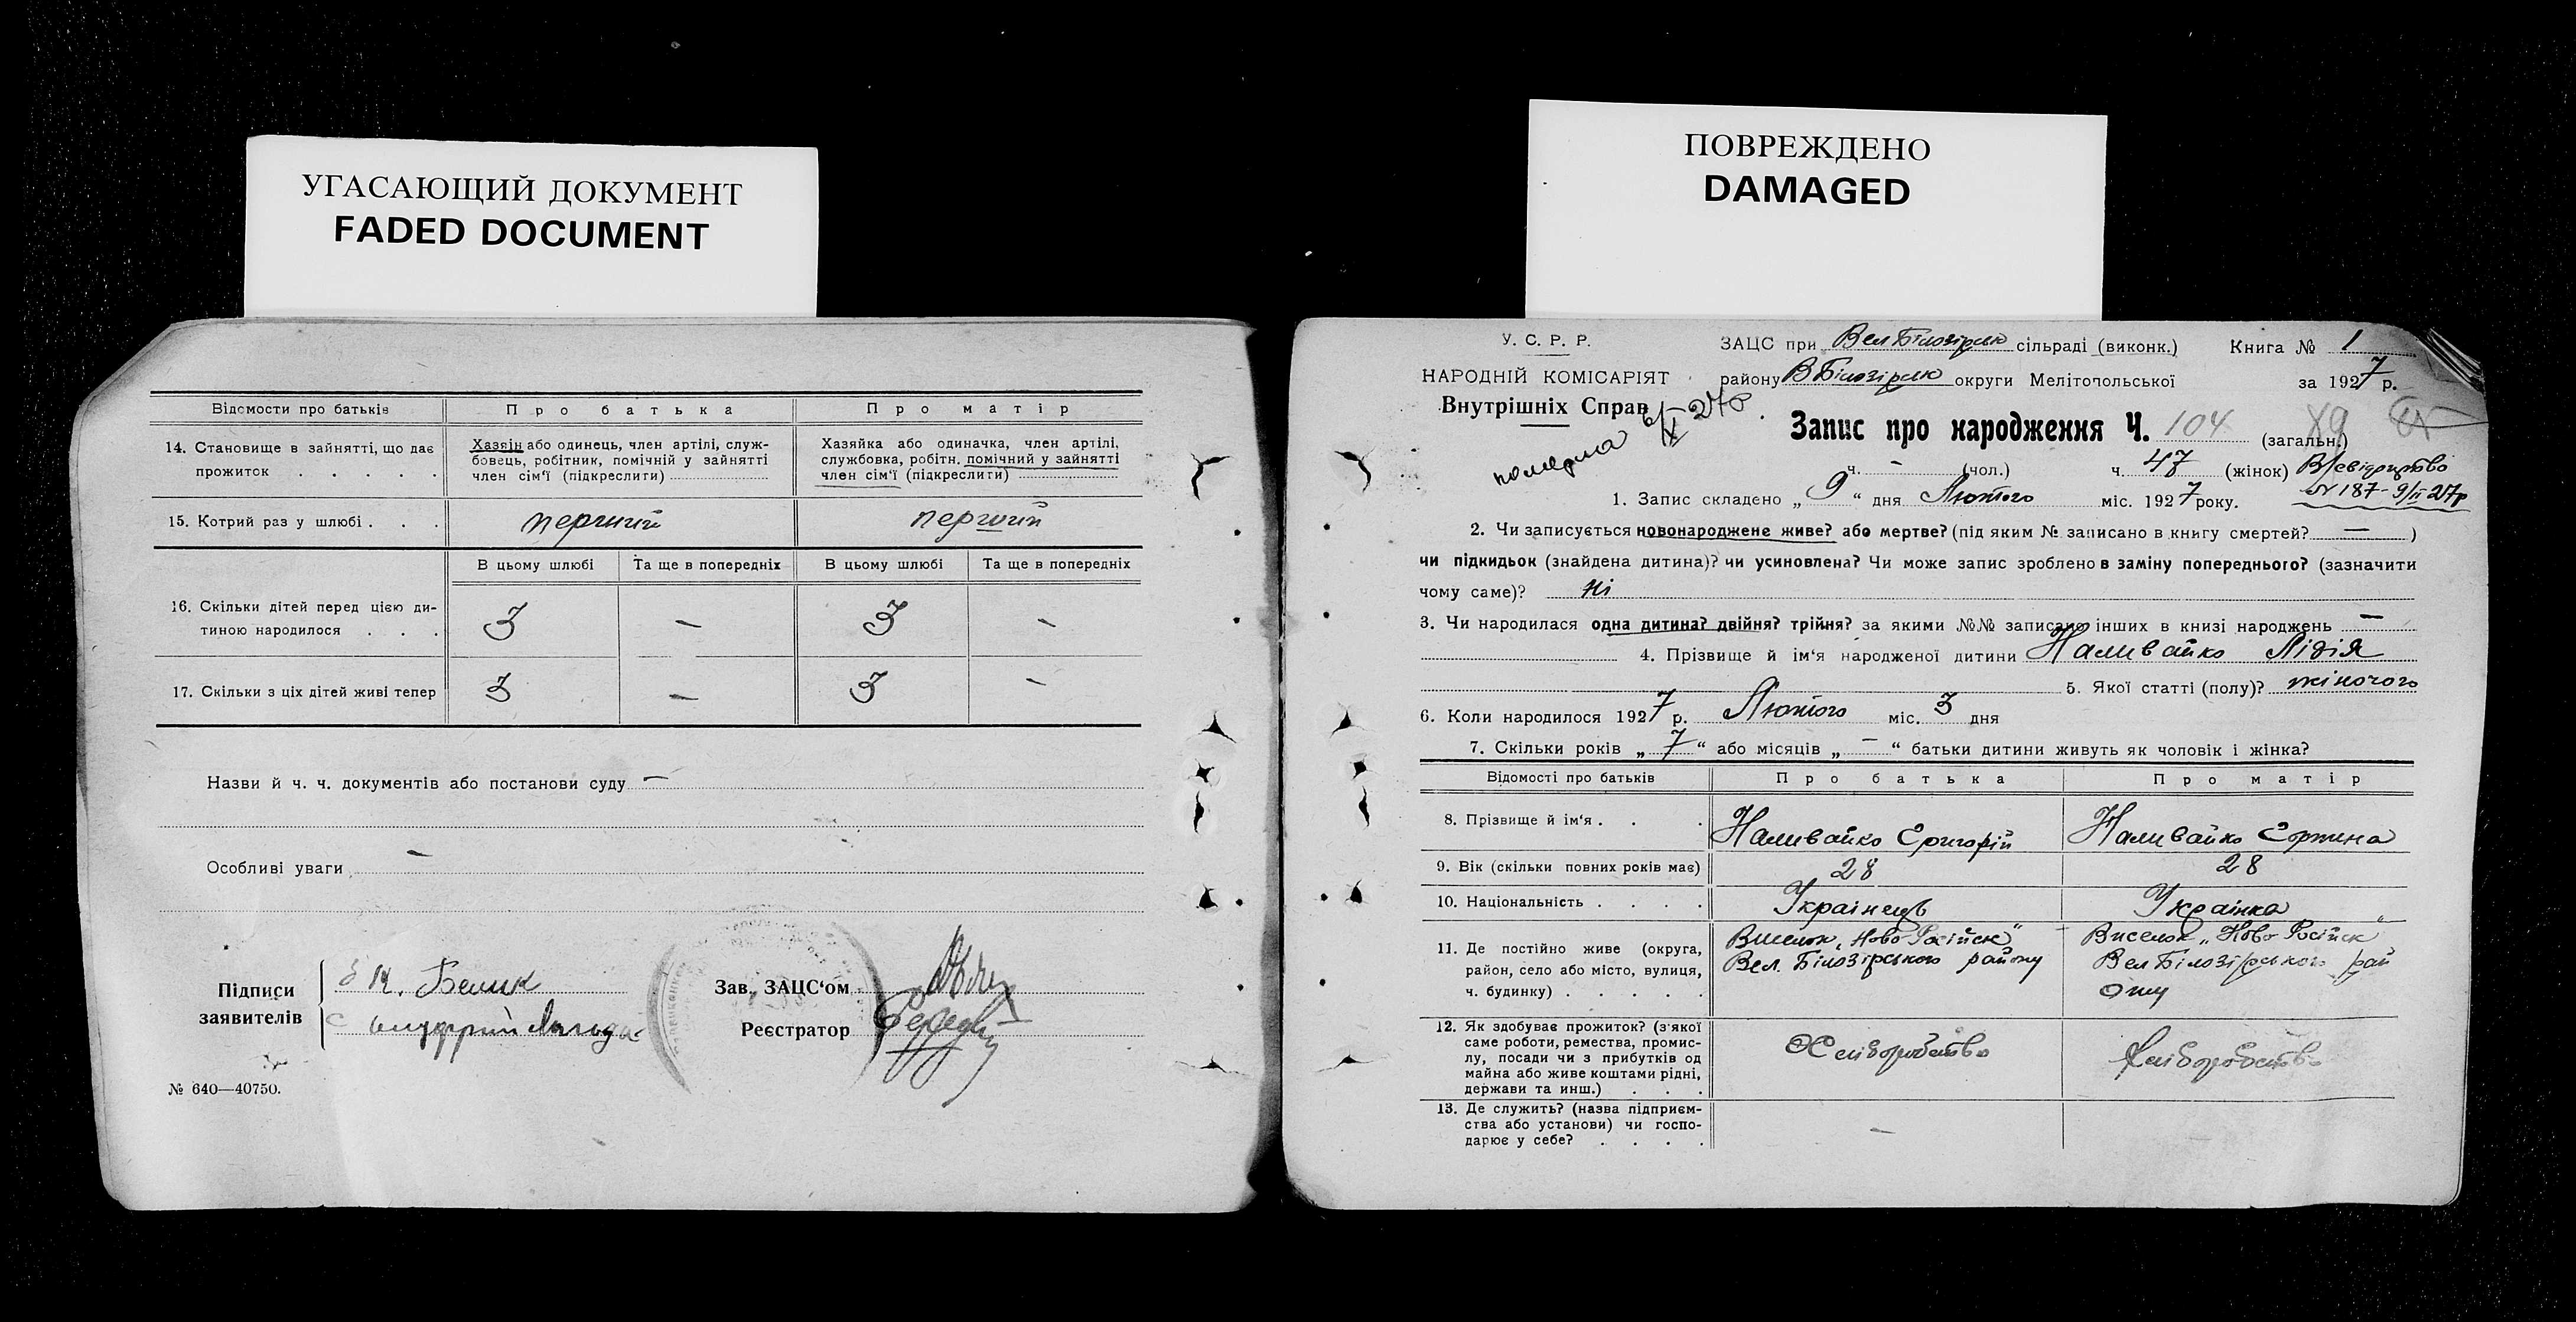 УГАСАЮЩИЙ ДОКУМЕНТ
FADED DOCUMENT
Відомости про батьків
Про батька
Про матір
14. Становище в зайнятті, що дає
прожиток . . . . .
Хазяін або одинець, член артілі, служ-
бовець, робітник, помічній у зайнятті
член сім'ї (підкреслити)
Хазяйка або одиначка, член артілі,
службовка, робітн. помічний у зайнятті
член сім'ї (підкреслити)
15. Котрий раз у шлюбі . . .
перший
перший
В цьому шлюбі
Та ще в попередніх
В цьому шлюбі
Та ще в попередніх
16. Скільки дітей перед цією ди-
тиною народилося . . .
3 — 3 —
17. Скільки з ціх дітей живі тепер
3 — 3 —
Назви й ч. ч. документів або постанови суду —
Особливі уваги —
Підписи
заявителів
К. Белик
Зав., ЗАЦС'ом
Реєстратор
№ 640—40750.
ПОВРЕЖДЕНО
DAMAGED
У. С. Р. Р.
НАРОДНІЙ КОМІСАРІЯТ
Внутрішніх Справ
ЗАЦС при Вел Білозірськ сільраді (виконк.) Книга № 1
району ВБілозірськ округи Мелітопольської за 1927 р.
померла 6/X 27 р.
Запис про народження Ч. 104 (загальн.) 89
ч. — (чол.) ч. 47 (жінок)
№ 187 - 9/II 27р
1. Запис складено „ 9 “ дня Лютого міс. 1927 року.
2. Чи записується новонароджене живе? або мертве? (під яким № записано в книгу смертей? — )
чи підкидьок (знайдена дитина)? чи усиновлена? Чи може запис зроблено в заміну попереднього? (зазначити
чому саме)? ні
3. Чи народилася одна дитина? двійня? трійня? за якими №№ записано інших в книзі народжень —
4. Прізвище й ім'я народженої дитини Наливайко Лідія
5. Якої статті (полу)? жіночого
6. Коли народилося 1927 р. Лютого міс. 3 дня
7. Скільки років „ 7 “ або місяців „ — “ батьки дитини живуть як чоловік і жінка?
Відомості про батьків
Про батька
Про матір
8. Прізвище й ім'я . . .
Наливайко Григорій
Наливайко
9. Вік (скільки повних років має)
28
28
10. Національність . . . .
Українець
Українка
11. Де постійно живе (округа,
район, село або місто, вулиця,
ч. будинку) . . . . .
Виселок „Ново-Російск“
Вел. Білозірського району
Виселок „Ново Російск“
Вел Білозірського рай
ону
12. Як здобуває прожиток? (з якої
саме роботи, ремества, промис-
лу, посади чи з прибутків од
майна або живе коштами рідні,
держави та инш.) . . .
Хліборобство
Хліборобство
13. Де служить? (назва підприєм-
ства або установи) чи госпо-
дарює у себе? . . . .
—